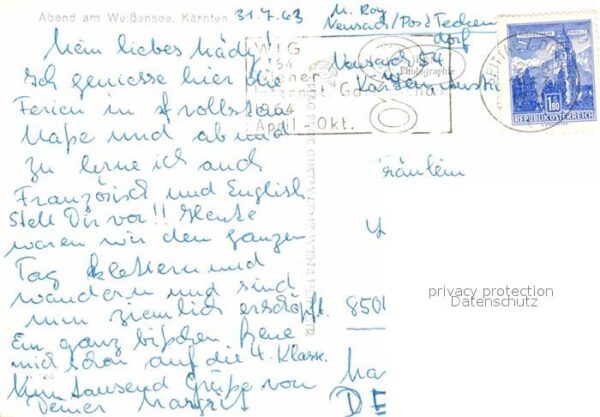 Abend am Weißensee, Kärnten
31.7.63
M. Roy
Neusach/Post Techen
dorf
Neusach 54
Kärnten Austria
Mein liebes Mädy!
Ich geniesse hier die
Ferien in vollstem
Maße und ab und
zu lerne ich auch
Französisch und English
Stell Dir vor!! Heute
waren wir den ganzen
Tag klettern und
wandern und sind
nun ziemlich erschöpft.
Ein ganz bißchen freue
mich schon auf die 4. Klasse.
Nun tausend Grüße von
Deiner Margrit
WIG
1964
April - Okt.
Photographie
REPUBLIK ÖSTERREICH
1.80
Fräulein
privacy protection
Datenschutz
850